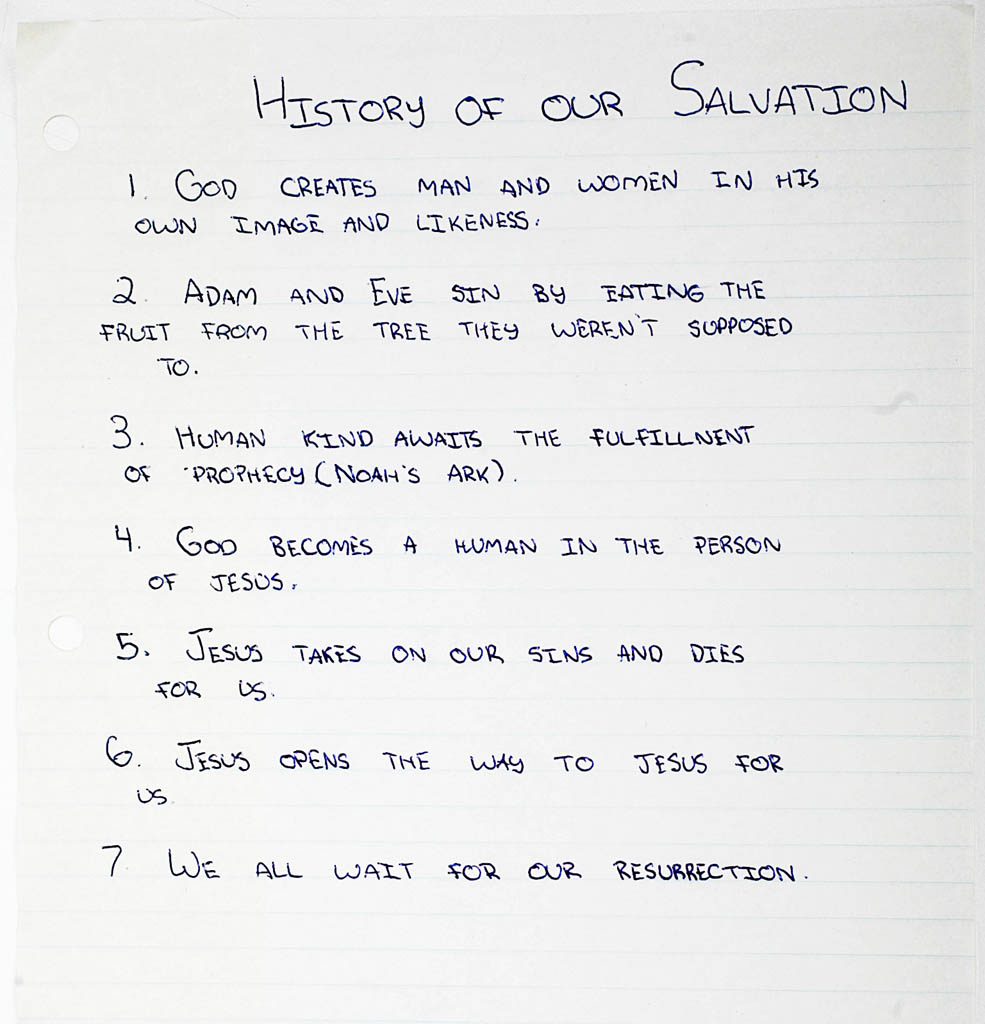 HISTORY OF OUR SALVATION
1. GOD CREATES MAN AND WOMEN IN HIS
OWN IMAGE AND LIKENESS.
2. ADAM AND EVE SIN BY EATING THE
FRUIT FROM THE TREE THEY WEREN'T SUPPOSED
TO.
3. HUMAN KIND AWAITS THE FULFILLNENT
OF PROPHECY (NOAH'S ARK).
4. GOD BECOMES A HUMAN IN THE PERSON
OF JESUS.
5. JESUS TAKES ON OUR SINS AND DIES
FOR US.
6. JESUS OPENS THE WAY TO JESUS FOR
US.
7. WE ALL WAIT FOR OUR RESURRECTION.